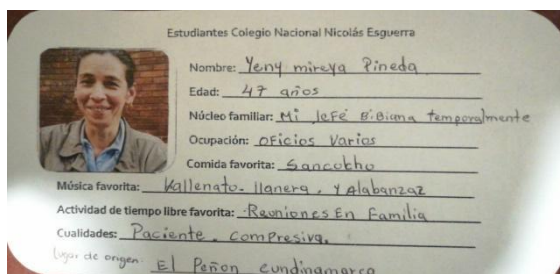 Estudiantes Colegio Nacional Nicolás Esguerra
Nombre: Yeny mireya Pineda
Edad: 47 años
Núcleo familiar: Mi Jefé BiBiana temporalmente
Ocupación: oficios Varios
Comida favorita: Sancobho
Música favorita: Vallenato. llanera. y Alabanzaz
Actividad de tiempo libre favorita: Reuniones En Familia
Cualidades: Paciente. compresiva.
lugar de origen: El Peñon cundinamarca